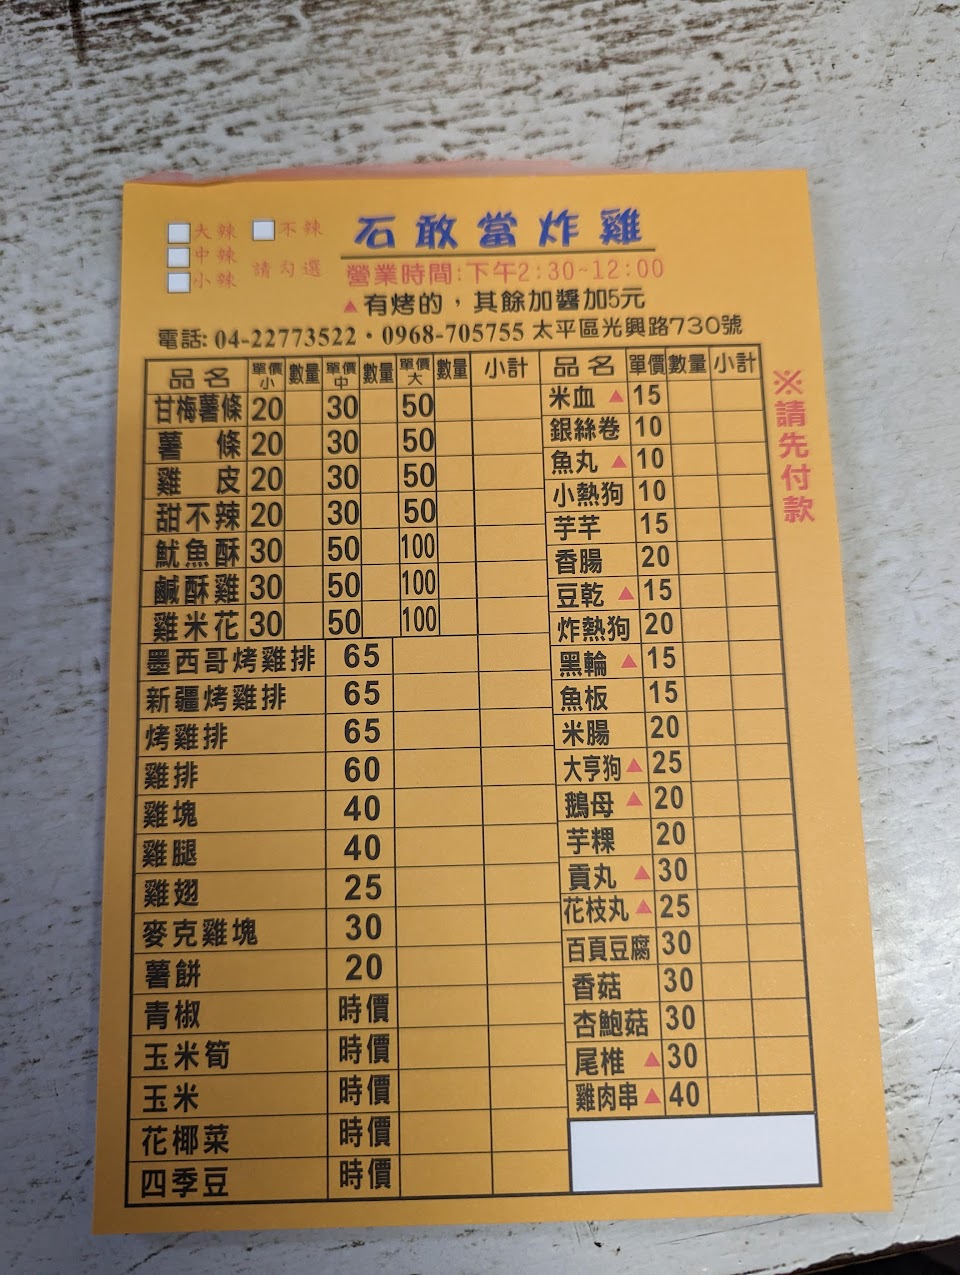 石敢當炸雞
大辣 不辣
中辣 請勾選
小辣
營業時間:下午2:30~12:00
▲有烤的，其餘加醬加5元
電話: 04-22773522・0968-705755 太平區光興路730號
※請先付款
品名 單價小 數量 單價中 數量 單價大 數量 小計
甘梅薯條 20 30 50
薯條 20 30 50
雞皮 20 30 50
甜不辣 20 30 50
魷魚酥 30 50 100
鹹酥雞 30 50 100
雞米花 30 50 100
墨西哥烤雞排 65
新疆烤雞排 65
烤雞排 65
雞排 60
雞塊 40
雞腿 40
雞翅 25
麥克雞塊 30
薯餅 20
青椒 時價
玉米筍 時價
玉米 時價
花椰菜 時價
四季豆 時價
品名 單價 數量 小計
米血▲ 15
銀絲卷 10
魚丸▲ 10
小熱狗 10
芋芊 15
香腸 20
豆乾▲ 15
炸熱狗 20
黑輪▲ 15
魚板 15
米腸 20
大亨狗▲ 25
鵝母▲ 20
芋粿 20
貢丸▲ 30
花枝丸▲ 25
百頁豆腐 30
香菇 30
杏鮑菇 30
尾椎▲ 30
雞肉串▲ 40